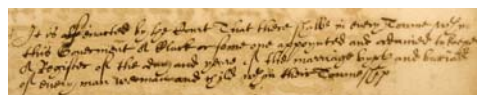 It is Enacted by the Court That there shalbe in every Towne wthin
this Goverment A Clark or some one appoynted and ordained to keepe
A Register of the day and yeare of the marriage byrth and buriall
of every man weoman and child wthin their Towneship